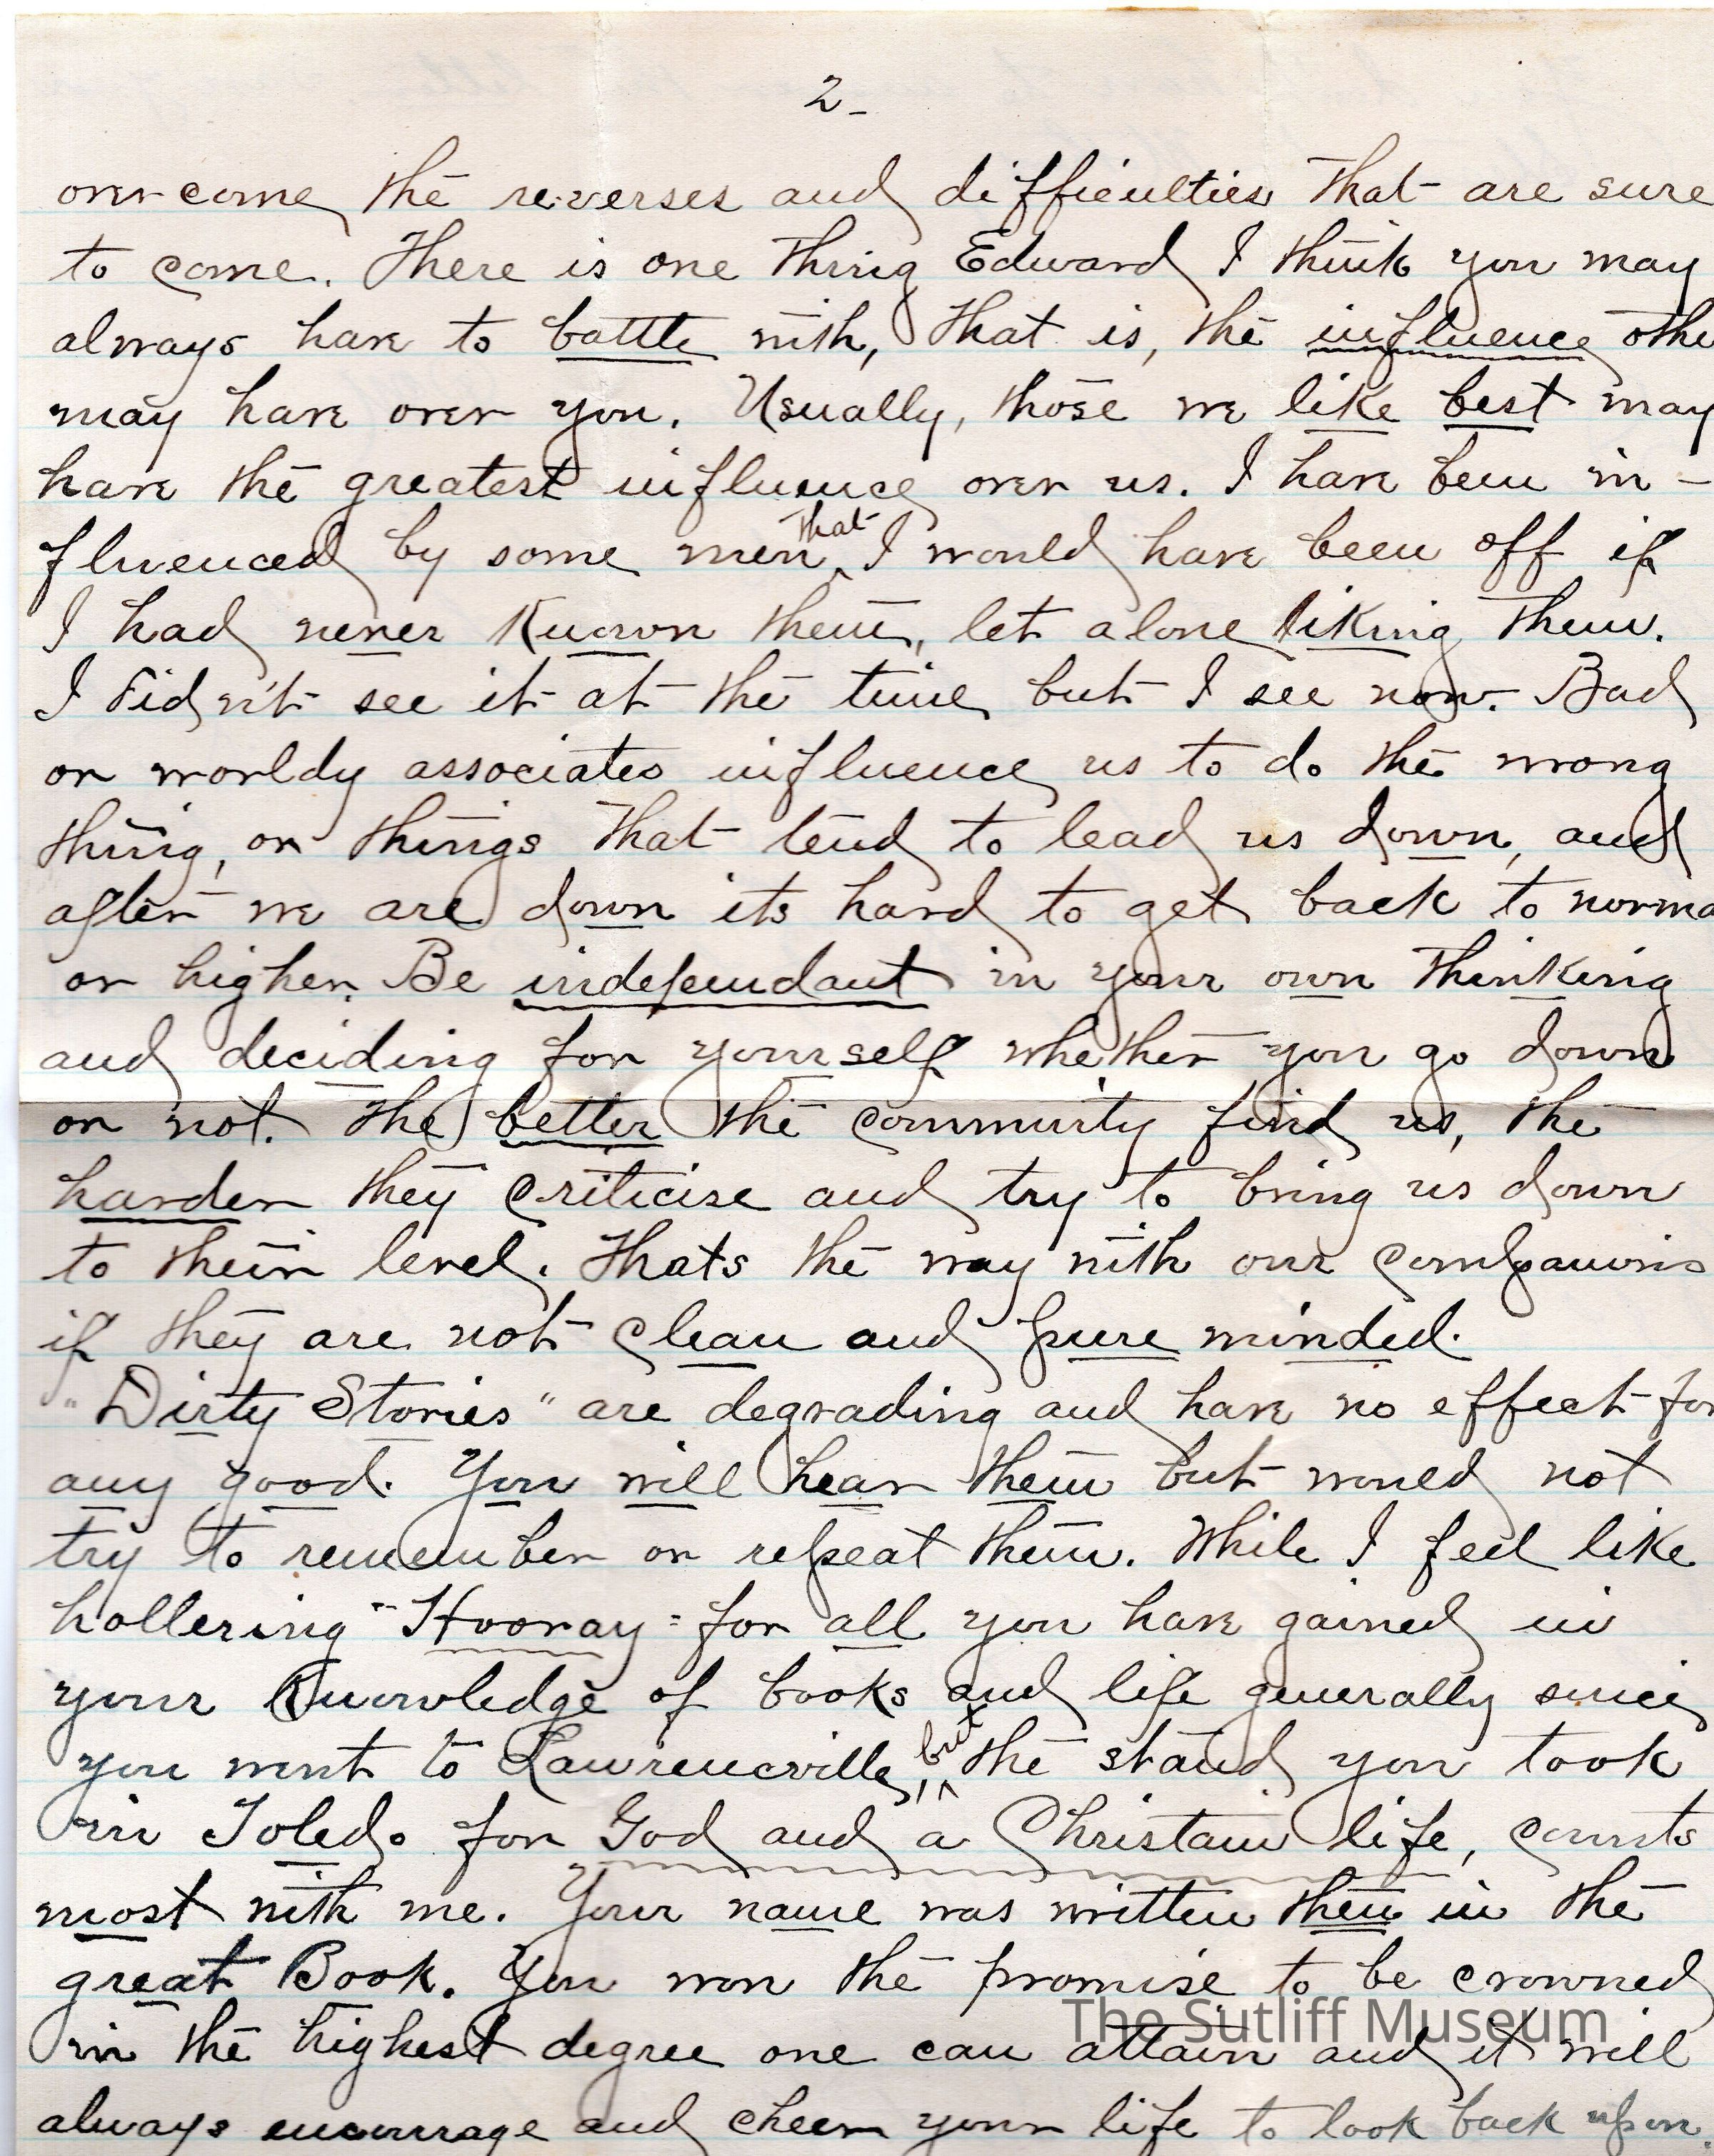 2-
overcome the reverses and difficulties that are sure
to come. There is one thing Edward I think you may
always have to battle with, that is, the influence othe
may have over you. Usually, those we like best may
have the greatest influence over us. I have been in-
fluenced by some men that I would have been off if
I had never known them, let alone liking them.
I didn't see it at the time but I see now. Bad
or worldy associates influence us to do the wrong
thing, or things that tend to lead us down, and
after we are down its hard to get back to norma
or higher. Be independant in your own thinking
and deciding for yourself whether you go down
or not. The better the community find us, the
harder they criticise and try to bring us down
to their level. Thats the way with our companions
if they are not clean and pure minded.
"Dirty Stories" are degrading and have no effect for
any good. You will hear them but would not
try to remember or repeat them. While I feel like
hollering "Hooray" for all you have gained in
your knowledge of books and life generally since
you went to Lawrenceville, but the stand you took
in Toledo for God and a Christain life, counts
most with me. Your name was written then in the
great Book. You won the promise to be crowned
in the highest degree one can attain and it will
always encourage and cheer your life to look back upon.
The Sutliff Museum